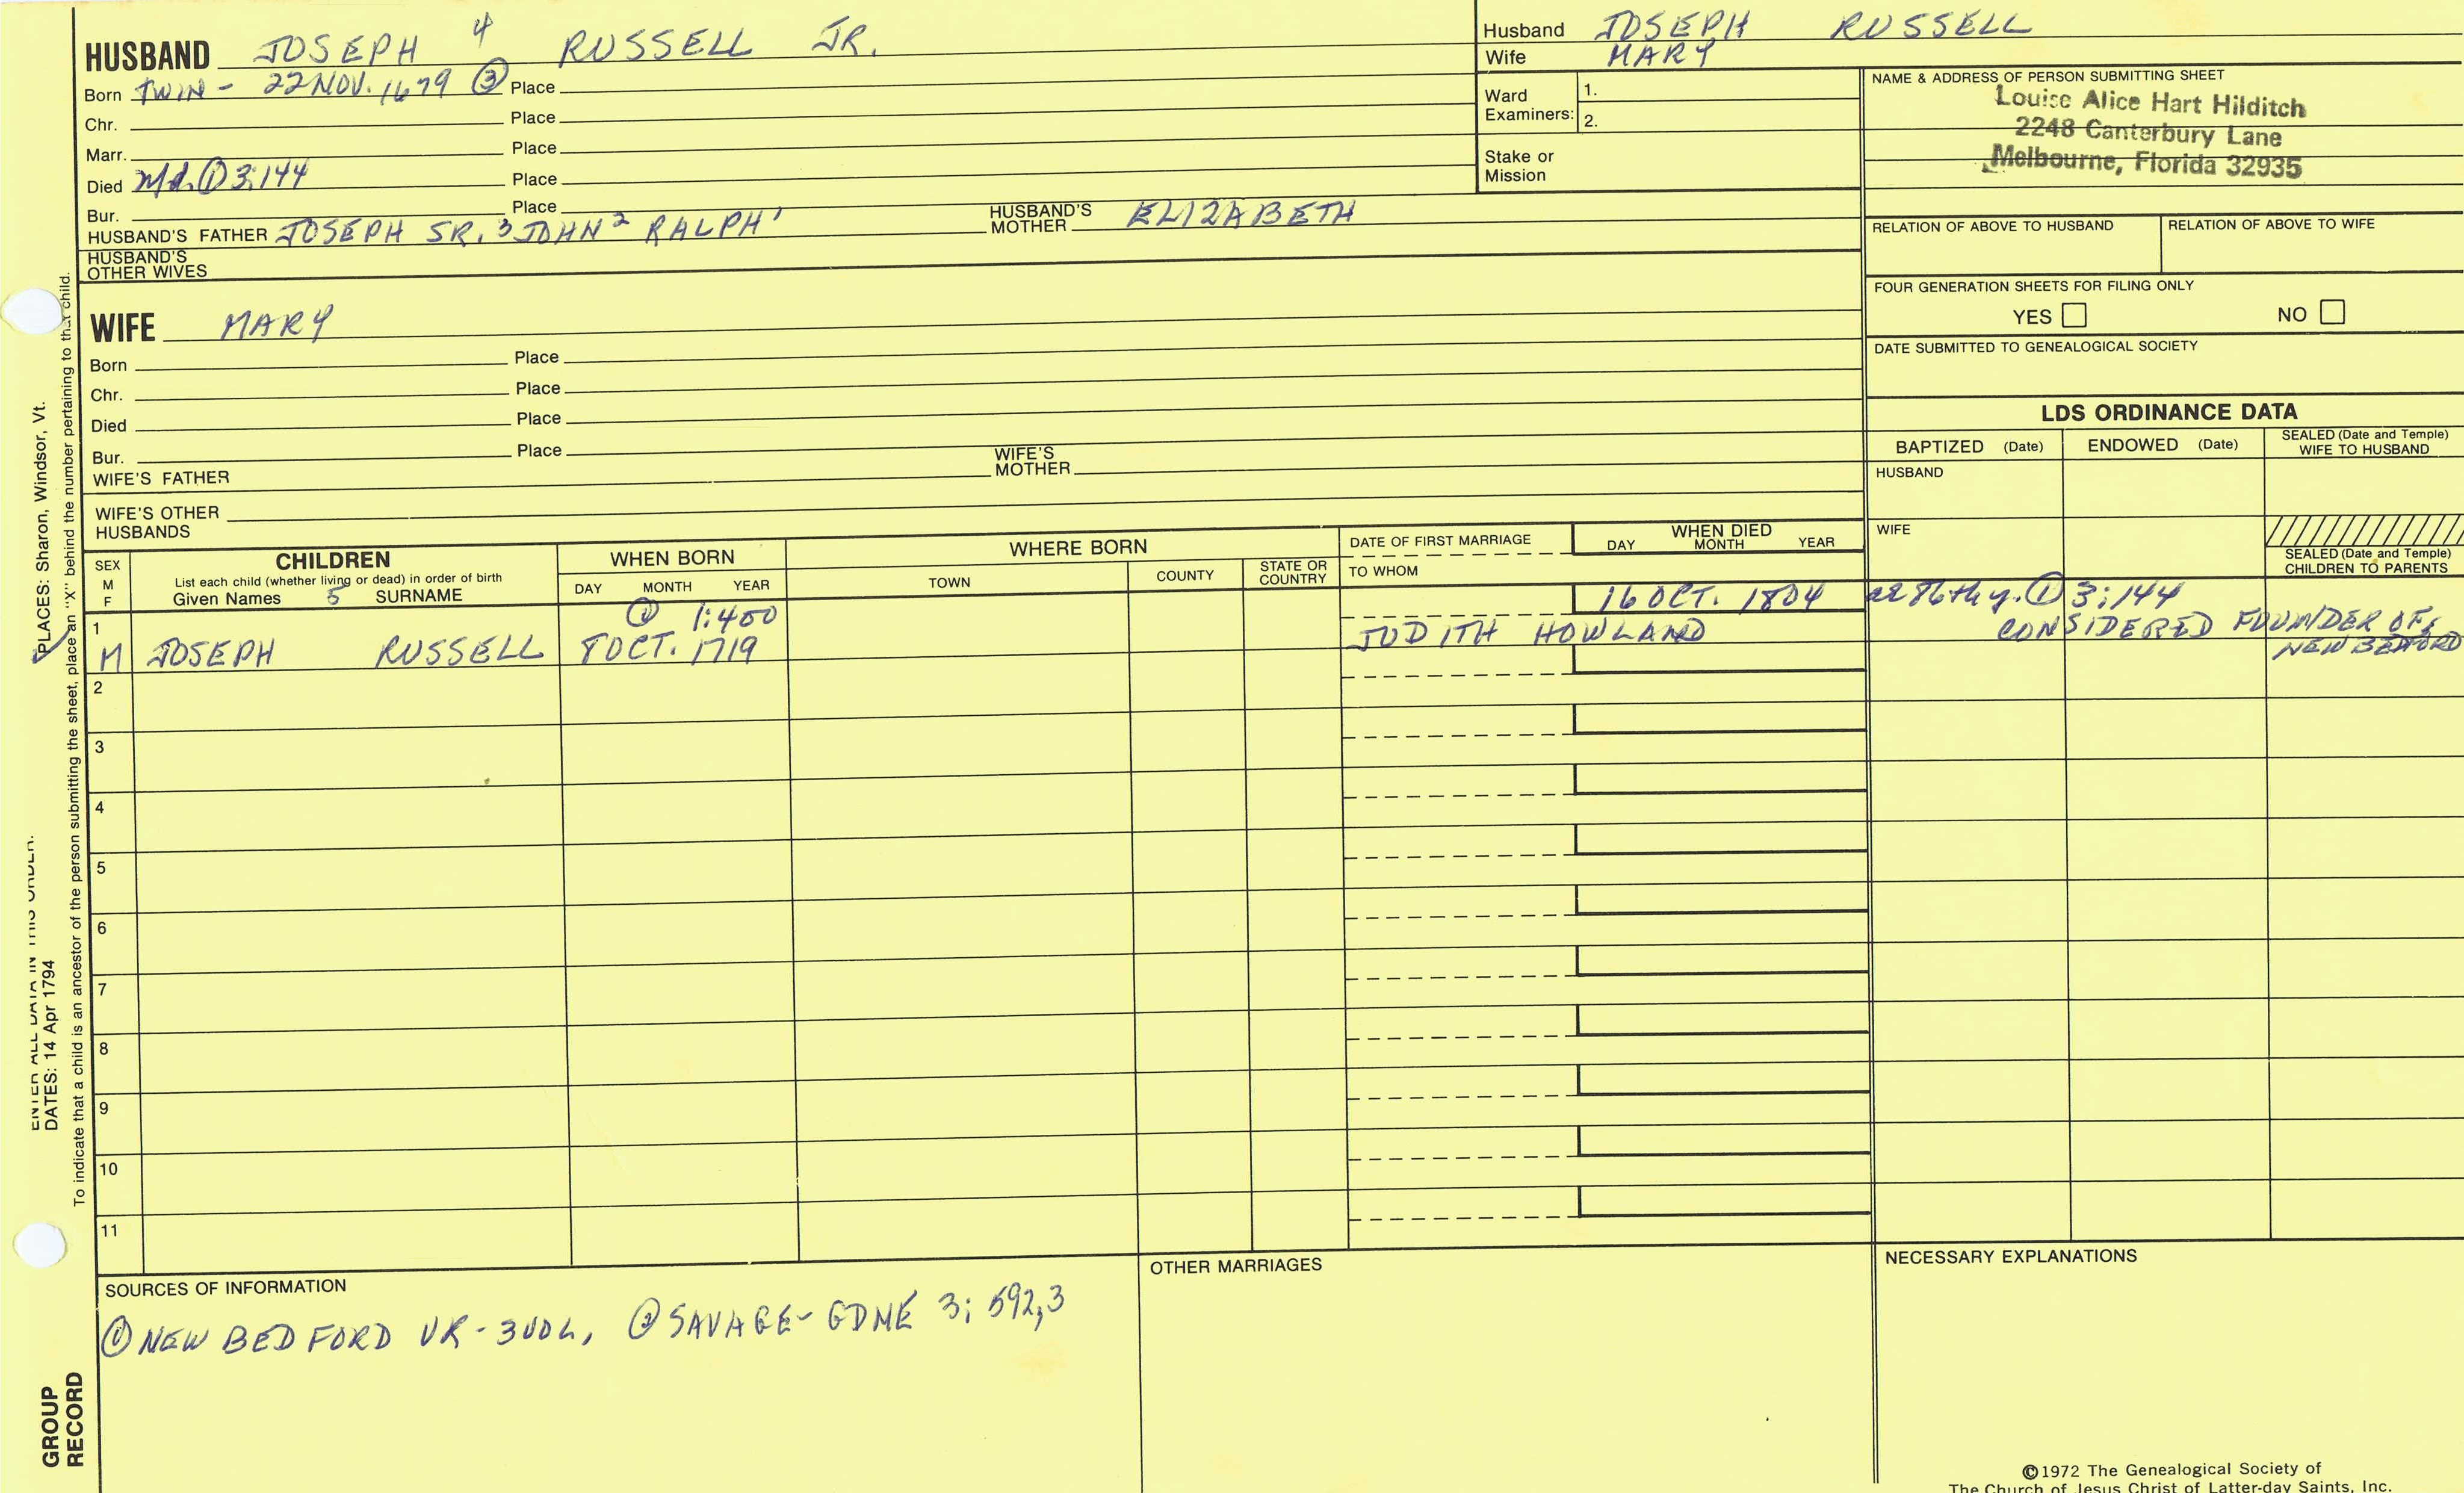 HUSBAND JOSEPH 4 RUSSELL JR.
Born TWIN - 22 NOV. 1679 ③ Place
Chr. Place
Marr. Place
Died Md. ① 3:144 Place
Bur. Place
HUSBAND'S FATHER JOSEPH SR. 3 JOHN 2 RALPH 1 HUSBAND'S MOTHER ELIZABETH
HUSBAND'S OTHER WIVES
WIFE MARY
Born Place
Chr. Place
Died Place
Bur. Place
WIFE'S FATHER WIFE'S MOTHER
WIFE'S OTHER HUSBANDS
Husband JOSEPH RUSSELL
Wife MARY
Ward Examiners: 1.
2.
Stake or Mission
NAME & ADDRESS OF PERSON SUBMITTING SHEET
Louise Alice Hart Hilditch
2248 Canterbury Lane
Melbourne, Florida 32935
RELATION OF ABOVE TO HUSBAND RELATION OF ABOVE TO WIFE
FOUR GENERATION SHEETS FOR FILING ONLY
YES NO
DATE SUBMITTED TO GENEALOGICAL SOCIETY
LDS ORDINANCE DATA
BAPTIZED (Date) ENDOWED (Date) SEALED (Date and Temple) WIFE TO HUSBAND
HUSBAND
WIFE
SEALED (Date and Temple) CHILDREN TO PARENTS
SEX M F
CHILDREN
List each child (whether living or dead) in order of birth
Given Names 5 SURNAME
WHEN BORN
DAY MONTH YEAR
WHERE BORN
TOWN COUNTY STATE OR COUNTRY
DATE OF FIRST MARRIAGE
TO WHOM
WHEN DIED
DAY MONTH YEAR
1 ① 1:400 16 OCT. 1804 ae 86th y. ① 3:144
M JOSEPH RUSSELL 8 OCT. 1719 JUDITH HOWLAND CONSIDERED FOUNDER OF
NEW BEDFORD
2
3
4
5
6
7
8
9
10
11
SOURCES OF INFORMATION
① NEW BEDFORD VR - 3 VOL, ③ SAVAGE - GDNE 3; 592,3
OTHER MARRIAGES
NECESSARY EXPLANATIONS
©1972 The Genealogical Society of
The Church of Jesus Christ of Latter-day Saints, Inc.
ENTER ALL DATA IN THIS ORDER:
DATES: 14 Apr 1794
PLACES: Sharon, Windsor, Vt.
To indicate that a child is an ancestor of the person submitting the sheet, place an "X" behind the number pertaining to that child.
GROUP
RECORD